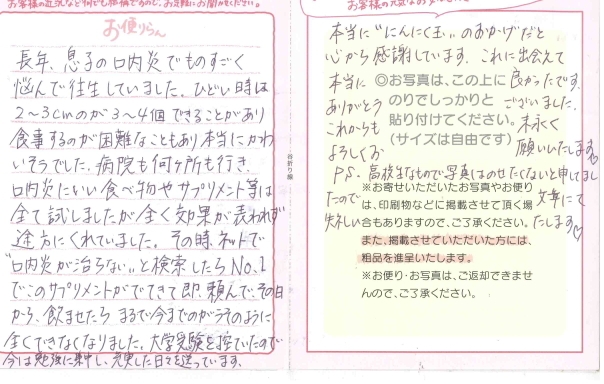 お便りらん
長年、息子の口内炎でものすごく
悩んで往生していました。ひどい時は
2～3cmのが3～4個できることがあり
食事するのが困難なこともあり本当にかわ
いそうでした。病院も何ヶ所も行き、
口内炎にいい食べ物やサプリメント等は
全て試しましたが全く効果が表われず
途方にくれていました。その時ネットで
"口内炎が治らない"と検索したらNo.1
でこのサプリメントがでてきて即、頼んで、その日
から、飲ませたら まるで今までのがうそのように
全くできなくなりました。大学受験を控えていたので
今は勉強に集中し、充実した日々を送っています。
谷折り線
本当に"にんにく玉"のおかげだと
心から感謝しています。これに出会えて
本当に 良かったです。
ありがとう ございました。
これからも 末永く
よろしくお 願いいたします
◎お写真は、この上に
のりでしっかりと
貼り付けてください。
(サイズは自由です)
P.S. 高校生なもので写真はのせたくないと申してまし
たので 文章にて
失礼い たします♡
※お寄せいただいたお写真やお便り
は、印刷物などに掲載させて頂く場
合もありますので、ご了承ください。
また、掲載させていただいた方には、
粗品を進呈いたします。
※お便り・お写真は、ご返却できませ
んので、ご了承ください。